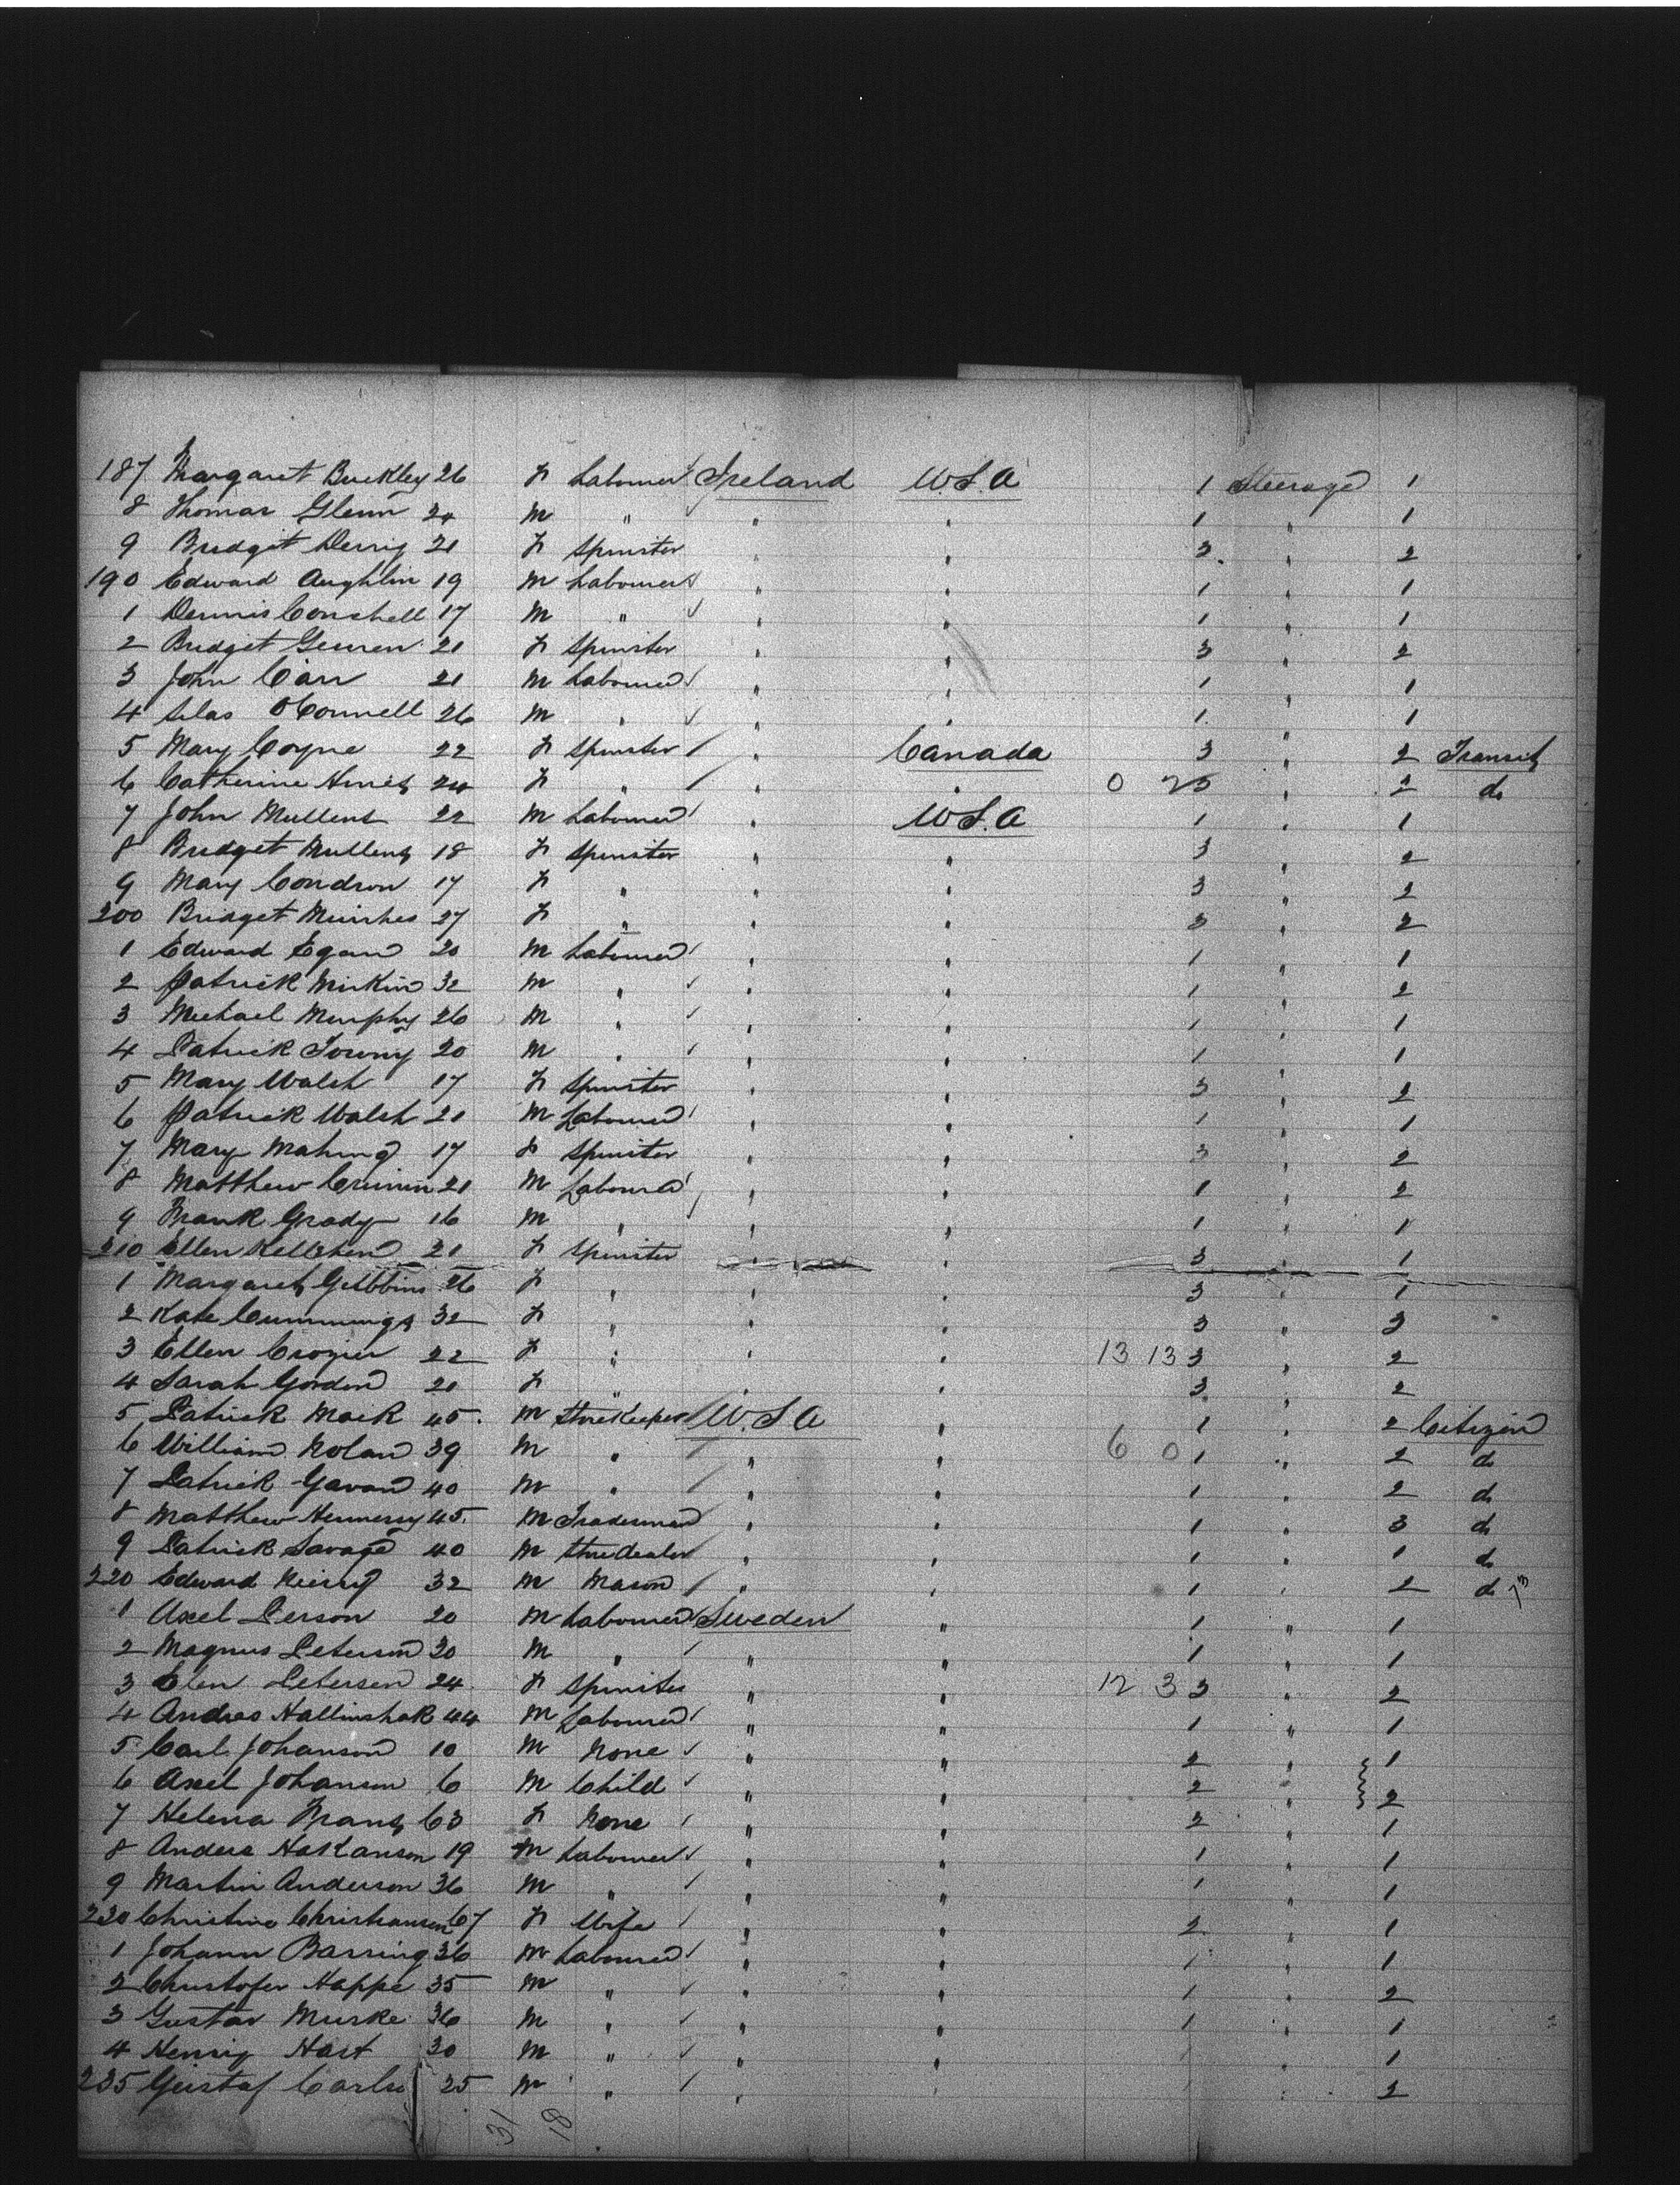 187 Margaret Buckley 26 F Labourer Ireland U.S.A 1 Steerage 1
8 Thomas Glenn 24 M " " " 1 " 1
9 Bridget Derrig 21 F Spinster " " 3 " 2
190 Edward Aughlin 19 M Labourer " " 1 " 1
1 Dennis 17 M " " " 1 " 1
2 Bridget 21 F Spinster " " 3 " 2
3 John Carr 21 M Labourer " " 1 " 1
4 Silas OConnell 26 M " " " 1 " 1
5 Mary Coyne 22 F Spinster " Canada 3 " 2 Transit
6 Catherine 24 F " " " 0 25 " 2 do
7 John Mullens 22 M Labourer " U.S.A 1 " 1
8 Bridget Mullens 18 F Spinster " " 3 " 2
9 Mary Condron 17 F " " " 3 " 2
200 Bridget 27 F " " " 3 " 2
1 Edward Egan 20 M Labourer " " 1 " 1
2 Patrick 32 M " " " 1 " 2
3 Michael Murphy 26 M " " " 1 " 1
4 Patrick 20 M " " " 1 " 1
5 Mary Walsh 17 F Spinster " " 3 " 2
6 Patrick Walsh 21 M Labourer " " 1 " 1
7 Mary 17 F Spinster " " 3 " 2
8 Matthew 21 M Labourer " " 1 " 2
9 Frank Grady 16 M " " " 1 " 1
210 Ellen Kelleher 21 F Spinster " " 3 " 1
1 Margaret Gibbins 26 F " " " 3 " 1
2 Kate Cummings 32 F " " " 3 " 3
3 Ellen Crozier 22 F " " " 13 13 3 " 2
4 Sarah Gordon 21 F " " " 3 " 2
5 Patrick Mack 45 M Storekeeper U.S.A " 1 " 2 Citizen
6 William Nolan 39 M " " " 6 0 1 " 2 do
7 Patrick Gavan 40 M " " " 1 " 2 do
8 Matthew Hennessy 45 M Tradesman " " 1 " 3 do
9 Patrick Savage 40 M " " 1 " 1 do
220 Edward 32 M Mason " " 1 " 2 do
1 Axel Person 20 M Labourer Sweden " 1 " 1
2 Magnus Peterson 20 M " " " 1 " 1
3 Elen Petersen 24 F Spinster " " 12 3 3 " 2
4 Andreas 44 M Labourer " " 1 " 1
5 Carl Johanson 10 M None " " 2 " 1
6 Axel Johanson 6 M Child " " 2 " 2
7 Helena 63 F None " " 2 " 1
8 Anders Hakanson 19 M Labourer " " 1 " 1
9 Martin Anderson 36 M " " " 1 " 1
230 Christine Christiansen 67 F Wife " " 2 " 1
1 Johann Barring 36 M Labourer " " 1 " 1
2 Christofer Happe 35 M " " " 1 " 2
3 Gustav Murke 36 M " " " 1 " 1
4 Henrig Hast 30 M " " " 1 " 1
235 Gustaf 25 M " " " 1 " 2
31 18